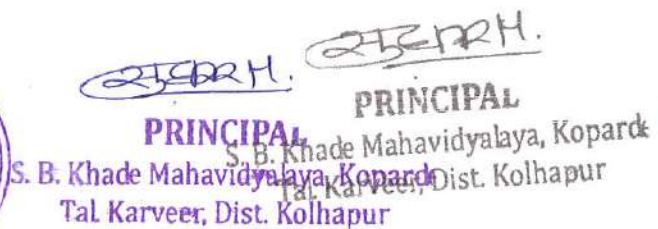 PRINCIPAL
S. B. Khade Mahavidyalaya, Koparde
Tal. Karveer, Dist. Kolhapur
PRINCIPAL
S. B. Khade Mahavidyalaya, Koparde
Tal. Karveer, Dist. Kolhapur